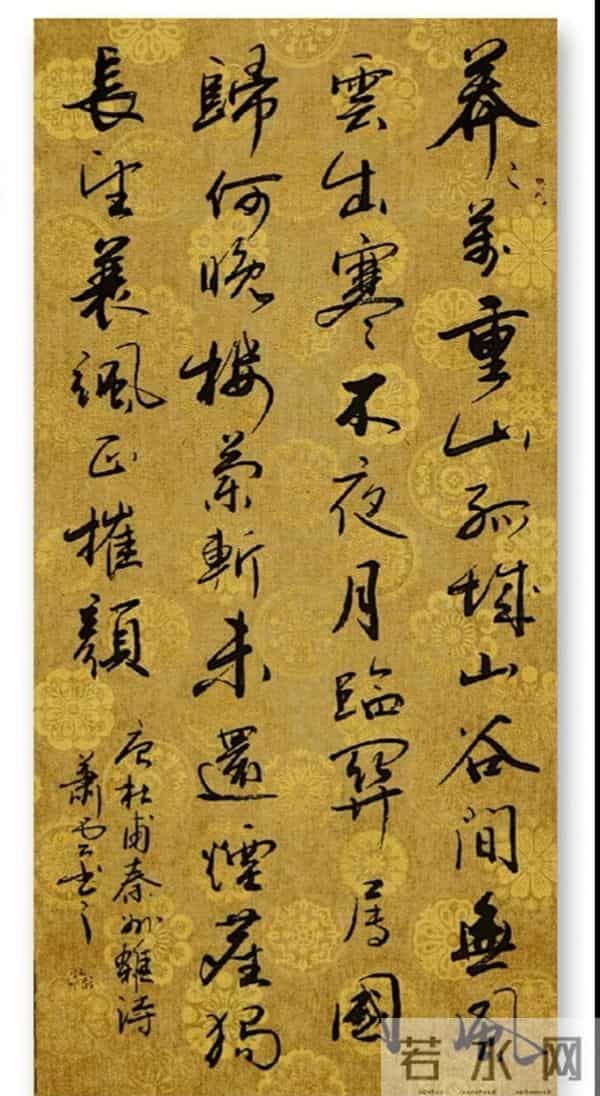 莽々萬重山孤城山谷間無風
雲出塞不夜月臨關屬國
歸何晚樓蘭斬未還煙塵獨
長望衰颯正摧顏
唐杜甫秦州雜詩
蕭雲書之
若水网